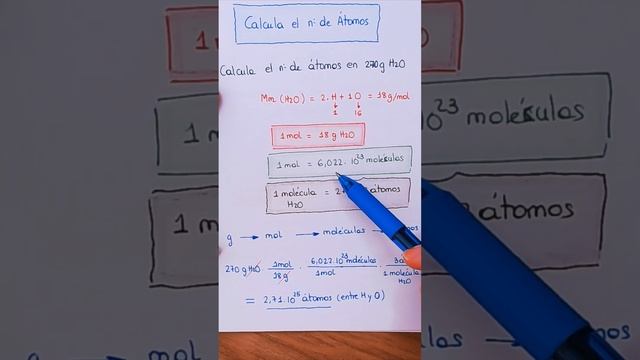 Calcula el nº de Átomos
Calcula el nº de átomos en 270g H2O
Mm (H2O) = 2.H + 1O = 18g/mol
1 16
1mol = 18g H2O
1mol = 6,022.10^23 moléculas
1 molécula = átomos
H2O
g → mol → moléculas →
270 g H2O . 1mol/18g . 6,022.10^23 moléculas/1mol . 1 molécula H2O
= 2,71.10^25 átomos (entre H y O)